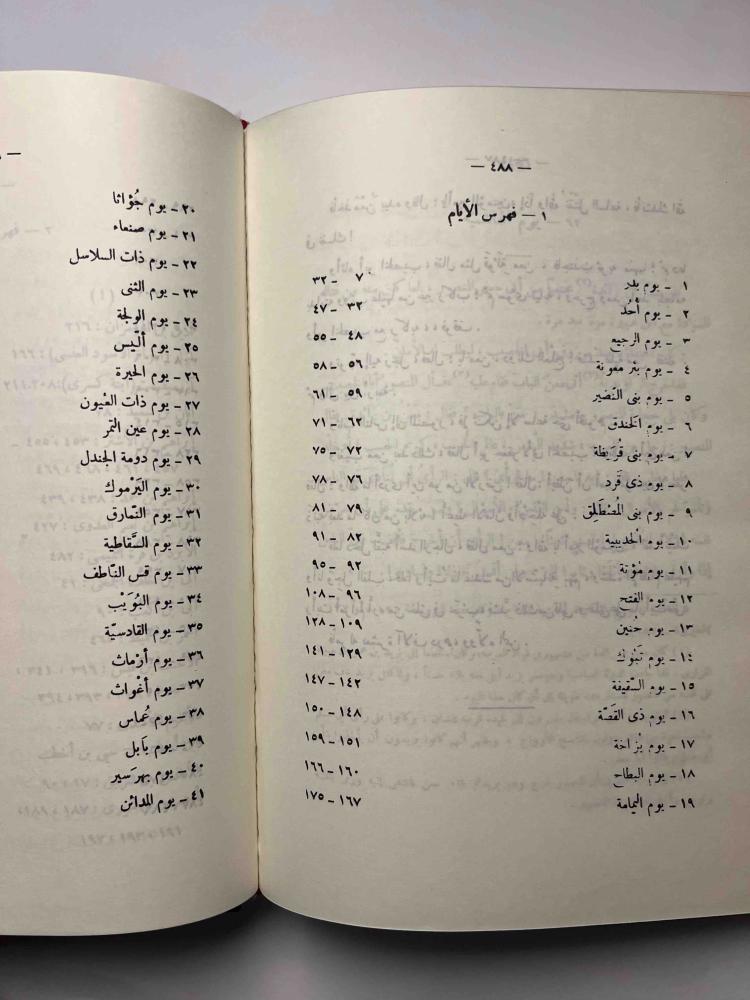 — ٤٨٨ —
١ — فهرس الأيام
١ - يوم بدر ٧ - ٣٢
٢ - يوم أُحُد ٣٢ - ٤٧
٣ - يوم الرجيع ٤٨ - ٥٥
٤ - يوم بئر معونة ٥٦ - ٥٨
٥ - يوم بنى النَّضير ٥٩ - ٦١
٦ - يوم الخندق ٦٢ - ٧١
٧ - يوم بنى قُرَيظة ٧٢ - ٧٥
٨ - يوم ذى قَرَد ٧٦ - ٧٨
٩ - يوم بنى المُصْطَلِق ٧٩ - ٨١
١٠ - يوم الحديبية ٨٢ - ٩١
١١ - يوم مُؤتة ٩٢ - ٩٥
١٢ - يوم الفتح ٩٦ - ١٠٨
١٣ - يوم حُنَين ١٠٩ - ١٢٨
١٤ - يوم تَبُوك ١٢٩ - ١٤١
١٥ - يوم السَّقيفة ١٤٢ - ١٤٧
١٦ - يوم ذى القَصَّة ١٤٨ - ١٥٠
١٧ - يوم بُزاخة ١٥١ - ١٥٩
١٨ - يوم البطاح ١٦٠ - ١٦٦
١٩ - يوم اليمامة ١٦٧ - ١٧٥
٢٠ - يوم جُؤاثا
٢١ - يوم صنعاء
٢٢ - يوم ذات السلاسل
٢٣ - يوم الثنى
٢٤ - يوم الولجة
٢٥ - يوم ألّيس
٢٦ - يوم الحيرة
٢٧ - يوم ذات العيون
٢٨ - يوم عين التمر
٢٩ - يوم دومة الجندل
٣٠ - يوم اليَرْموك
٣١ - يوم النَّمارق
٣٢ - يوم السَّقاطية
٣٣ - يوم قس النَّاطف
٣٤ - يوم البُوَيْب
٣٥ - يوم القادسيّة
٣٦ - يوم أرْماث
٣٧ - يوم أغْواث
٣٨ - يوم عُماس
٣٩ - يوم بَابل
٤٠ - يوم بهرَسير
٤١ - يوم المدائن